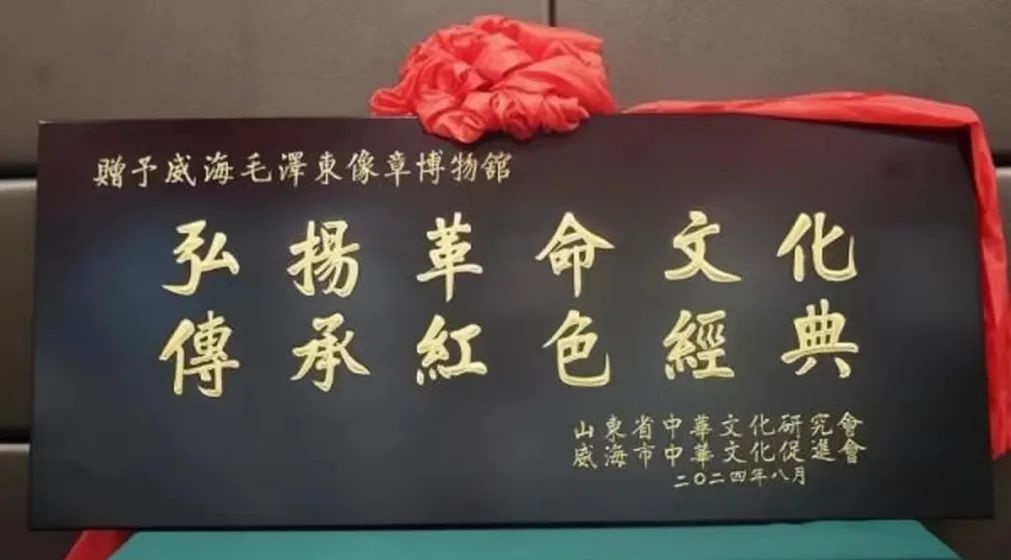 贈予威海毛澤東像章博物館
弘揚革命文化
傳承紅色經典
山東省中華文化研究會
威海市中華文化促進會
二〇二四年八月